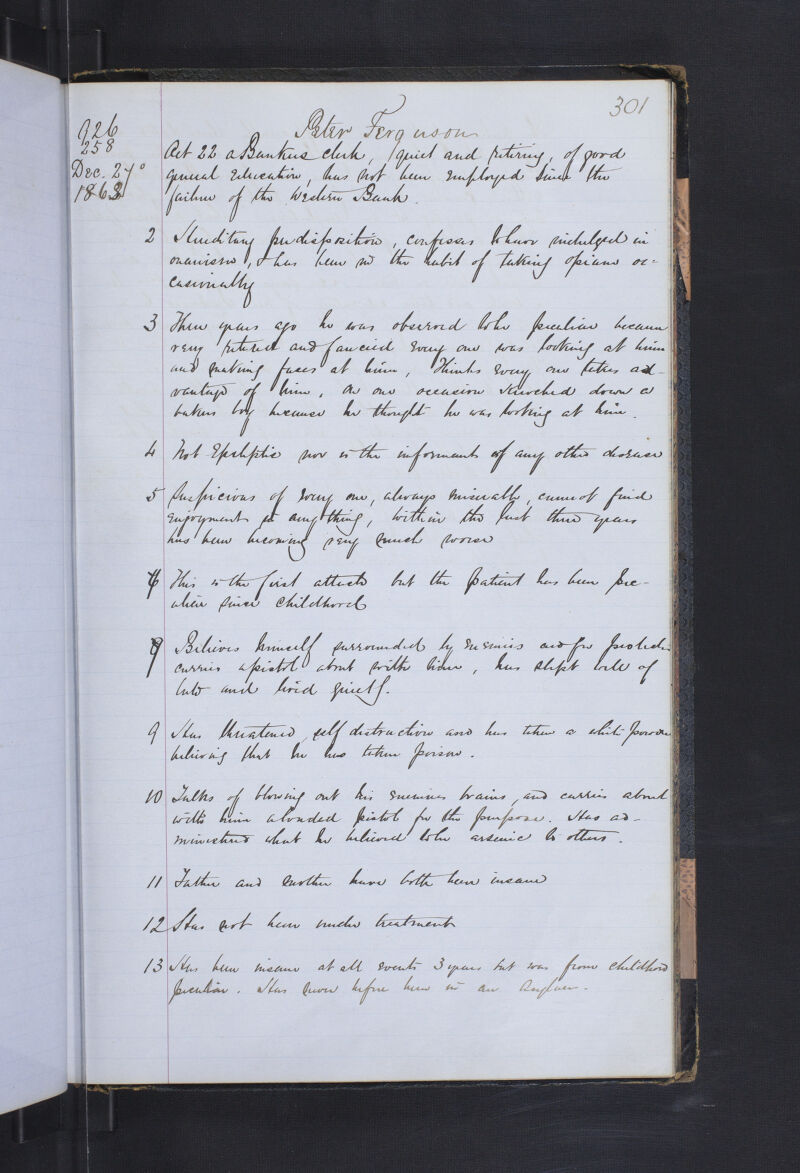 301
926
258
Dec. 27°
1862
Peter Ferguson
Aet 22 a Bankers clerk, quiet and retiring, of good
general education, has not been employed since the
failure of the Western Bank.
2 Hereditary predisposition, confesses to have indulged in
onanism, & has been in the habit of taking opium oc-
casionally
3 Three years ago he was observed to be peculiar became
very retired and fancied every one was looking at him
and making faces at him, Thinks every one takes ad-
vantage of him, On one occasion knocked down a
bakers boy because he thought he was looking at him.
4 Not Epileptic nor is the informant of any other disease
5 Suspicious of every one, always miserable, cannot find
enjoyment in any thing, within the last three years
has been becoming very much worse
6 This is the first attack but the patient has been pec-
uliar since childhood
Believes himself surrounded by enemies and for protection
carries a pistol about with him, has slept well of
late and lived quietly.
9 Has threatened self distruction and has taken a white powder
believing that he has taken poison.
10 Talks of blowing out his enemies brains, and carries about
with him a loaded pistol for the purpose. Has ad-
ministered what he believed to be arsenic to others.
11 Father and mother have both been insane
12 Has not been under treatment
13 Has been insane at all events 3 years but was from childhood
peculiar. Has never before been in an Asylum.